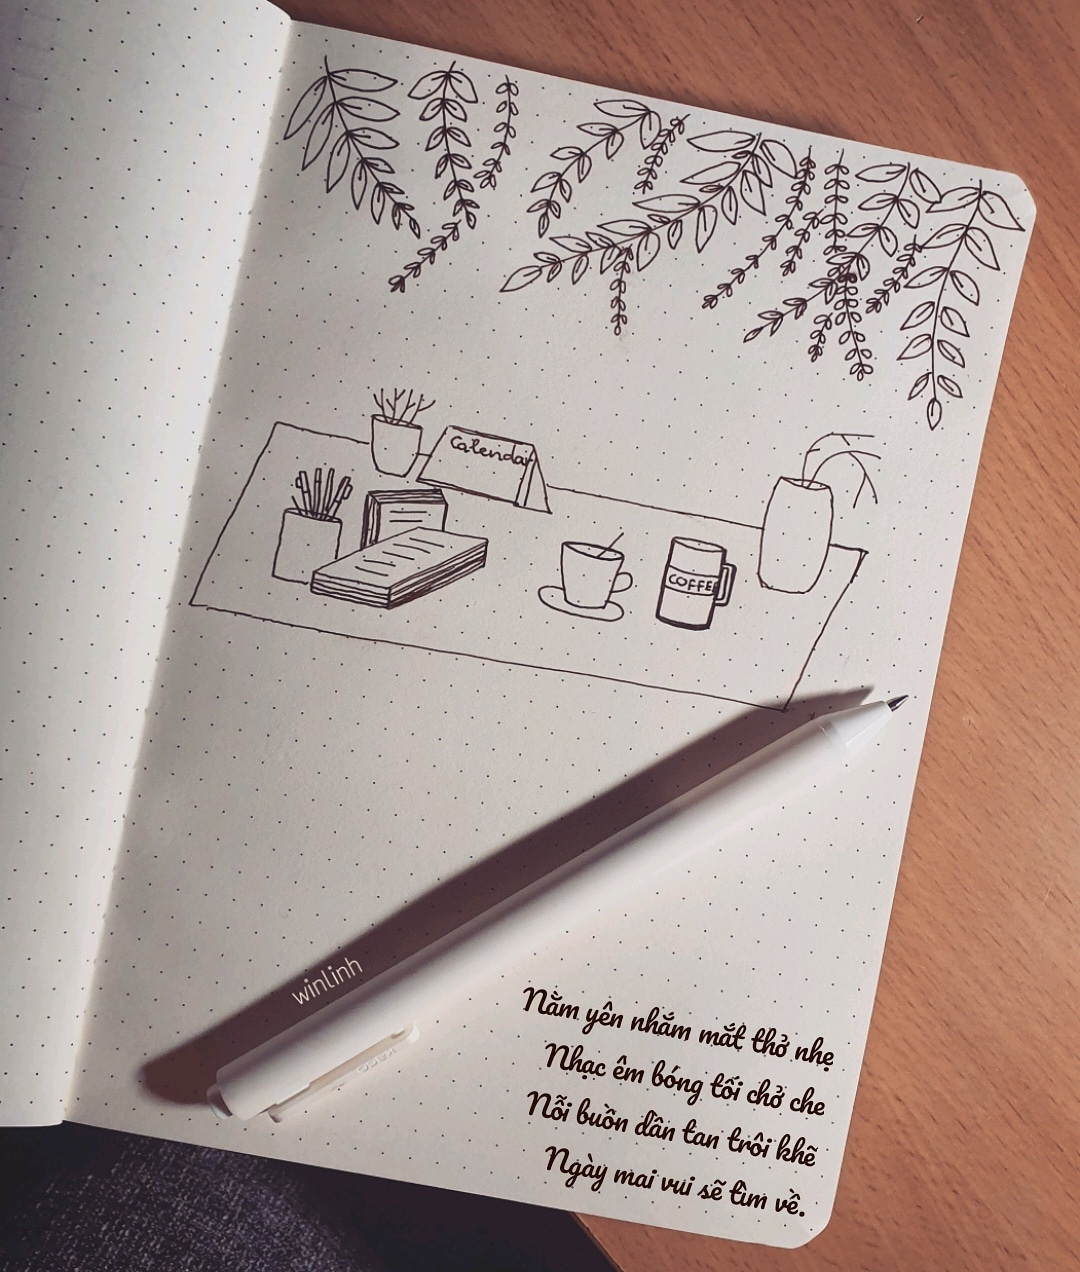 Calendar
COFFEE
winlinh
Nằm yên nhắm mắt thở nhẹ
Nhạc êm bóng tối chở che
Nỗi buồn dần tan trôi khẽ
Ngày mai vui sẽ tìm về.